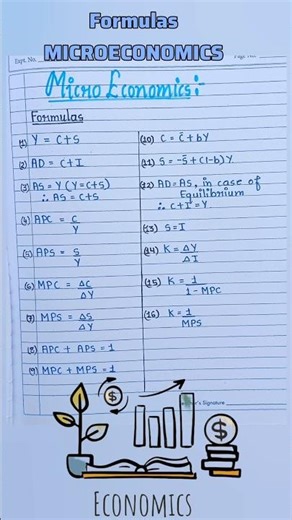 Formulas
MICROECONOMICS
Expt. No.
Page No.
Micro Economics:-
Formulas
(1) Y = C+S
(2) AD = C+I
(3) AS = Y (Y=C+S)
∴ AS = C+S
(4) APC = C/Y
(5) APS = S/Y
(6) MPC = ΔC/ΔY
(7) MPS = ΔS/ΔY
(8) APC + APS = 1
(9) MPC + MPS = 1
(10) C = C̄ + bY
(11) S = -S̄ + (1-b)Y
(12) AD = AS, in case of
Equilibrium
∴ C+I = Y.
(13) S=I
(14) K = ΔY/ΔI
(15) K = 1/1-MPC
(16) K = 1/MPS
's Signature
$
$
ECONOMICS